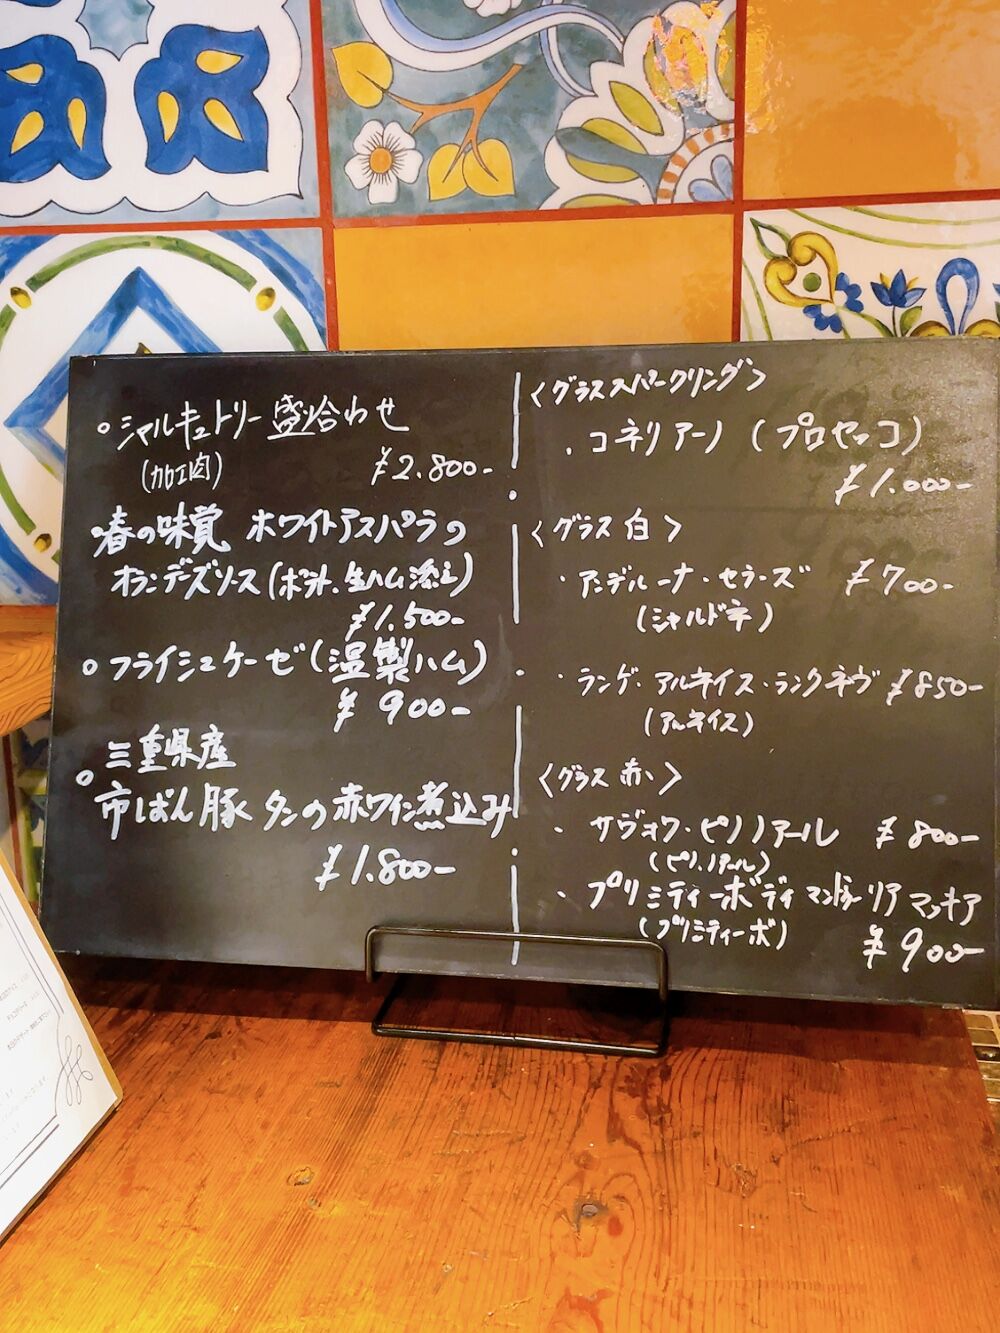 シャルキュトリー盛り合わせ
(加工肉)
¥2.800-
春の味覚 ホワイトアスパラの
オランデーズソース(ポーチド、生ハム添え)
¥1.500-
フライシュケーゼ(温製ハム)
¥900-
三重県産
市ぱん豚 タンの赤ワイン煮込み
¥1.800-
<グラススパークリング>
・コネリアーノ(プロセッコ)
¥1.000-
<グラス 白>
・アンデルーナ・セラーズ ¥700-
(シャルドネ)
・ランゲ・アルネイス・ランクネヴ ¥850-
(アルネイス)
<グラス 赤>
・サヴォワ・ピノノアール ¥800-
(ピノ・ノアール)
・プリミティーボ ディ マンドゥーリア マッキア
(プリミティーボ)
¥900-